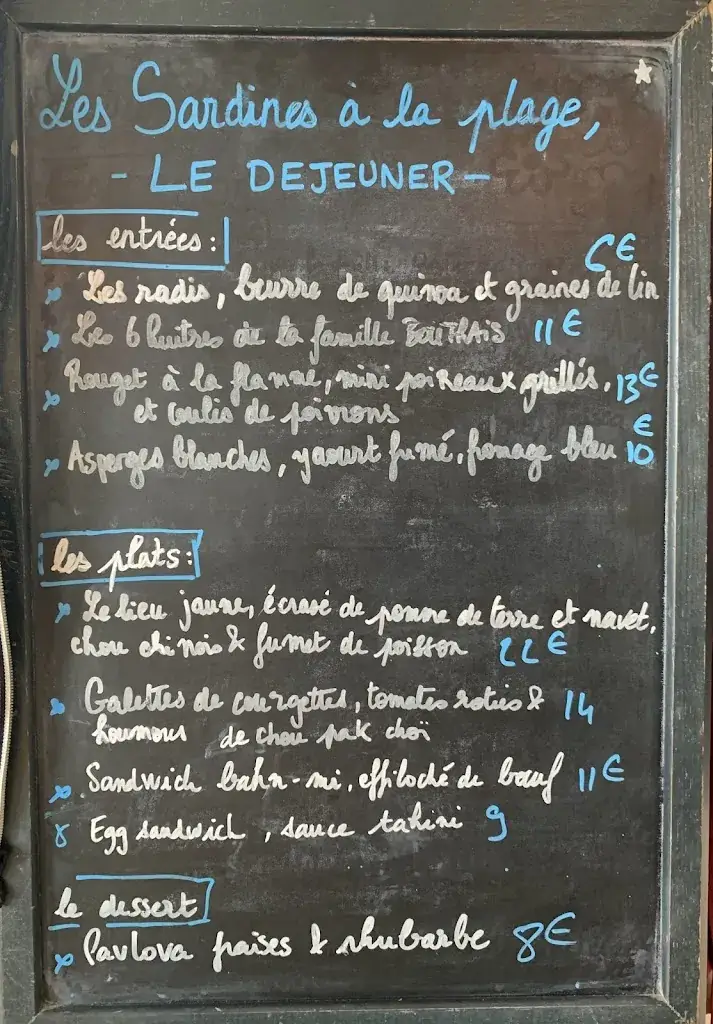 Les Sardines à la plage,
- LE DEJEUNER -
les entrées:
6€
Les radis, beurre de quinoa et graines de lin
Les 6 huîtres de la famille BOUTHAIS 11€
Rouget à la flamme, mini poireaux grillés, 13€
et coulis de poivrons
Asperges blanches, yaourt fumé, fromage bleu 10€
les plats:
Le lieu jaune, écrasé de pomme de terre et navet,
chou chinois & fumet de poisson 22€
Galettes de courgettes, tomates roties & 14
houmous de chou pak choï
Sandwich bahn-mi, effiloché de bœuf 11€
Egg sandwich, sauce tahini 9
le dessert
Pavlova fraises & rhubarbe 8€